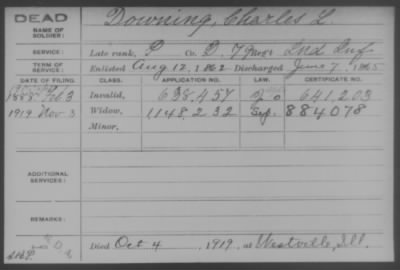 DEAD
NAME OF SOLDIER: Downing, Charles L.
SERVICE: Late rank, P Co. D, 79 Reg't Ind Inf
TERM OF SERVICE: Enlisted Aug 12, 1862 Discharged June 7, 1865
DATE OF FILING. CLASS. APPLICATION NO. LAW. CERTIFICATE NO.
1888 Feb 3 Invalid, 638,457 641,203
1919 Nov 3 Widow, 1148,232 Sep. 884078
Minor,
ADDITIONAL SERVICES:
REMARKS:
Died Oct 4, 1919, at Westville, Ill.